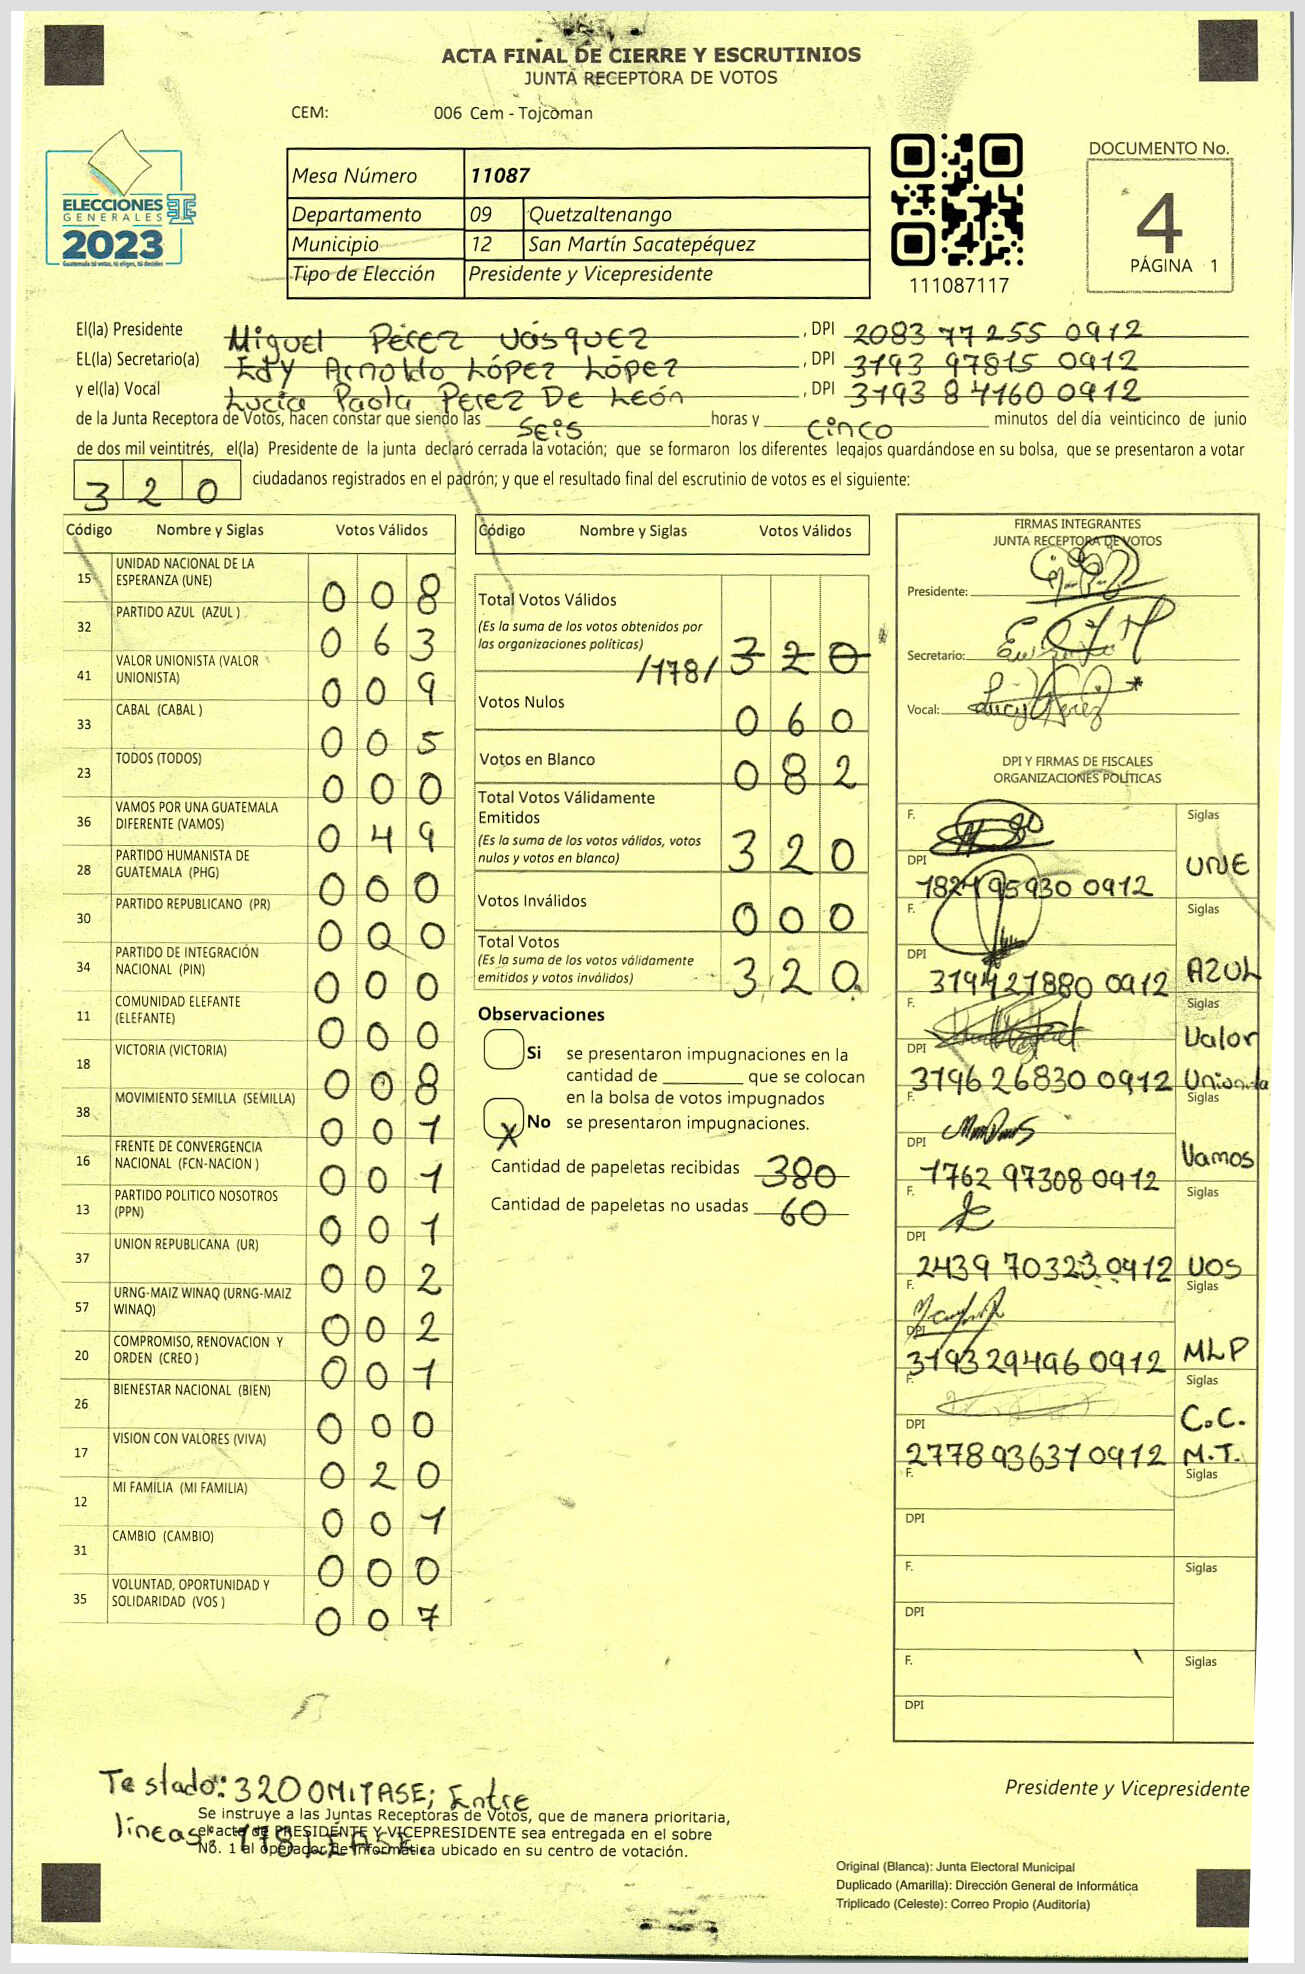 ACTA FINAL DE CIERRE Y ESCRUTINIOS
JUNTA RECEPTORA DE VOTOS
CEM: 006 Cem - Tojcoman
ELECCIONES
GENERALES
2023
Guatemala tú votas, tú eliges, tú decides
Mesa Número 11087
Departamento 09 Quetzaltenango
Municipio 12 San Martín Sacatepéquez
Tipo de Elección Presidente y Vicepresidente
111087117
DOCUMENTO No.
4
PÁGINA 1
El(la) Presidente Miguel Pérez Vásquez, DPI 2083 77255 0912
EL(la) Secretario(a) Edy Arnoldo López López, DPI 3193 97815 0912
y el(la) Vocal Lucía Paola Perez De León, DPI 3193 84160 0912
de la Junta Receptora de Votos, hacen constar que siendo las seis horas y cinco minutos del día veinticinco de junio
de dos mil veintitrés, el(la) Presidente de la junta declaró cerrada la votación; que se formaron los diferentes legajos guardándose en su bolsa, que se presentaron a votar
3 2 0 ciudadanos registrados en el padrón; y que el resultado final del escrutinio de votos es el siguiente:
Código Nombre y Siglas Votos Válidos
15 UNIDAD NACIONAL DE LA ESPERANZA (UNE) 0 0 8
32 PARTIDO AZUL (AZUL ) 0 6 3
41 VALOR UNIONISTA (VALOR UNIONISTA) 0 0 9
33 CABAL (CABAL ) 0 0 5
23 TODOS (TODOS) 0 0 0
36 VAMOS POR UNA GUATEMALA DIFERENTE (VAMOS) 0 4 9
28 PARTIDO HUMANISTA DE GUATEMALA (PHG) 0 0 0
30 PARTIDO REPUBLICANO (PR) 0 0 0
34 PARTIDO DE INTEGRACIÓN NACIONAL (PIN) 0 0 0
11 COMUNIDAD ELEFANTE (ELEFANTE) 0 0 0
18 VICTORIA (VICTORIA) 0 0 8
38 MOVIMIENTO SEMILLA (SEMILLA) 0 0 1
16 FRENTE DE CONVERGENCIA NACIONAL (FCN-NACION ) 0 0 1
13 PARTIDO POLITICO NOSOTROS (PPN) 0 0 1
37 UNION REPUBLICANA (UR) 0 0 2
57 URNG-MAIZ WINAQ (URNG-MAIZ WINAQ) 0 0 2
20 COMPROMISO, RENOVACION Y ORDEN (CREO ) 0 0 1
26 BIENESTAR NACIONAL (BIEN) 0 0 0
17 VISION CON VALORES (VIVA) 0 2 0
12 MI FAMILIA (MI FAMILIA) 0 0 1
31 CAMBIO (CAMBIO) 0 0 0
35 VOLUNTAD, OPORTUNIDAD Y SOLIDARIDAD (VOS ) 0 0 7
Código Nombre y Siglas Votos Válidos
Total Votos Válidos
(Es la suma de los votos obtenidos por
las organizaciones políticas)
/178/ 3 2 0
Votos Nulos 0 6 0
Votos en Blanco 0 8 2
Total Votos Válidamente
Emitidos
(Es la suma de los votos válidos, votos
nulos y votos en blanco) 3 2 0
Votos Inválidos 0 0 0
Total Votos
(Es la suma de los votos válidamente
emitidos y votos inválidos) 3 2 0
Observaciones
Si se presentaron impugnaciones en la
cantidad de ________ que se colocan
en la bolsa de votos impugnados
X No se presentaron impugnaciones.
Cantidad de papeletas recibidas 380
Cantidad de papeletas no usadas 60
FIRMAS INTEGRANTES
JUNTA RECEPTORA DE VOTOS
Presidente:
Secretario:
Vocal: Lucy Perez
DPI Y FIRMAS DE FISCALES
ORGANIZACIONES POLÍTICAS
F. Siglas
DPI 1824 95930 0912 UNE
F. Siglas
DPI 3194 21880 0912 AZUL
F. Siglas
DPI 3196 26830 0912 Valor Unionista
F. Siglas
DPI 1762 97308 0912 Vamos
F. Siglas
DPI 2439 70323 0912 VOS
F. Siglas
DPI 3193 29496 0912 MLP
F. Siglas
DPI 2778 93637 0912 C.C. M.T.
F. Siglas
DPI
F. Siglas
DPI
F. Siglas
DPI
Testado: 320 OMITASE; Entre
líneas: 178 LÉASE.
Se instruye a las Juntas Receptoras de Votos, que de manera prioritaria,
el acta de PRESIDENTE Y VICEPRESIDENTE sea entregada en el sobre
No. 1 al operador de informática ubicado en su centro de votación.
Presidente y Vicepresidente
Original (Blanca): Junta Electoral Municipal
Duplicado (Amarilla): Dirección General de Informática
Triplicado (Celeste): Correo Propio (Auditoría)